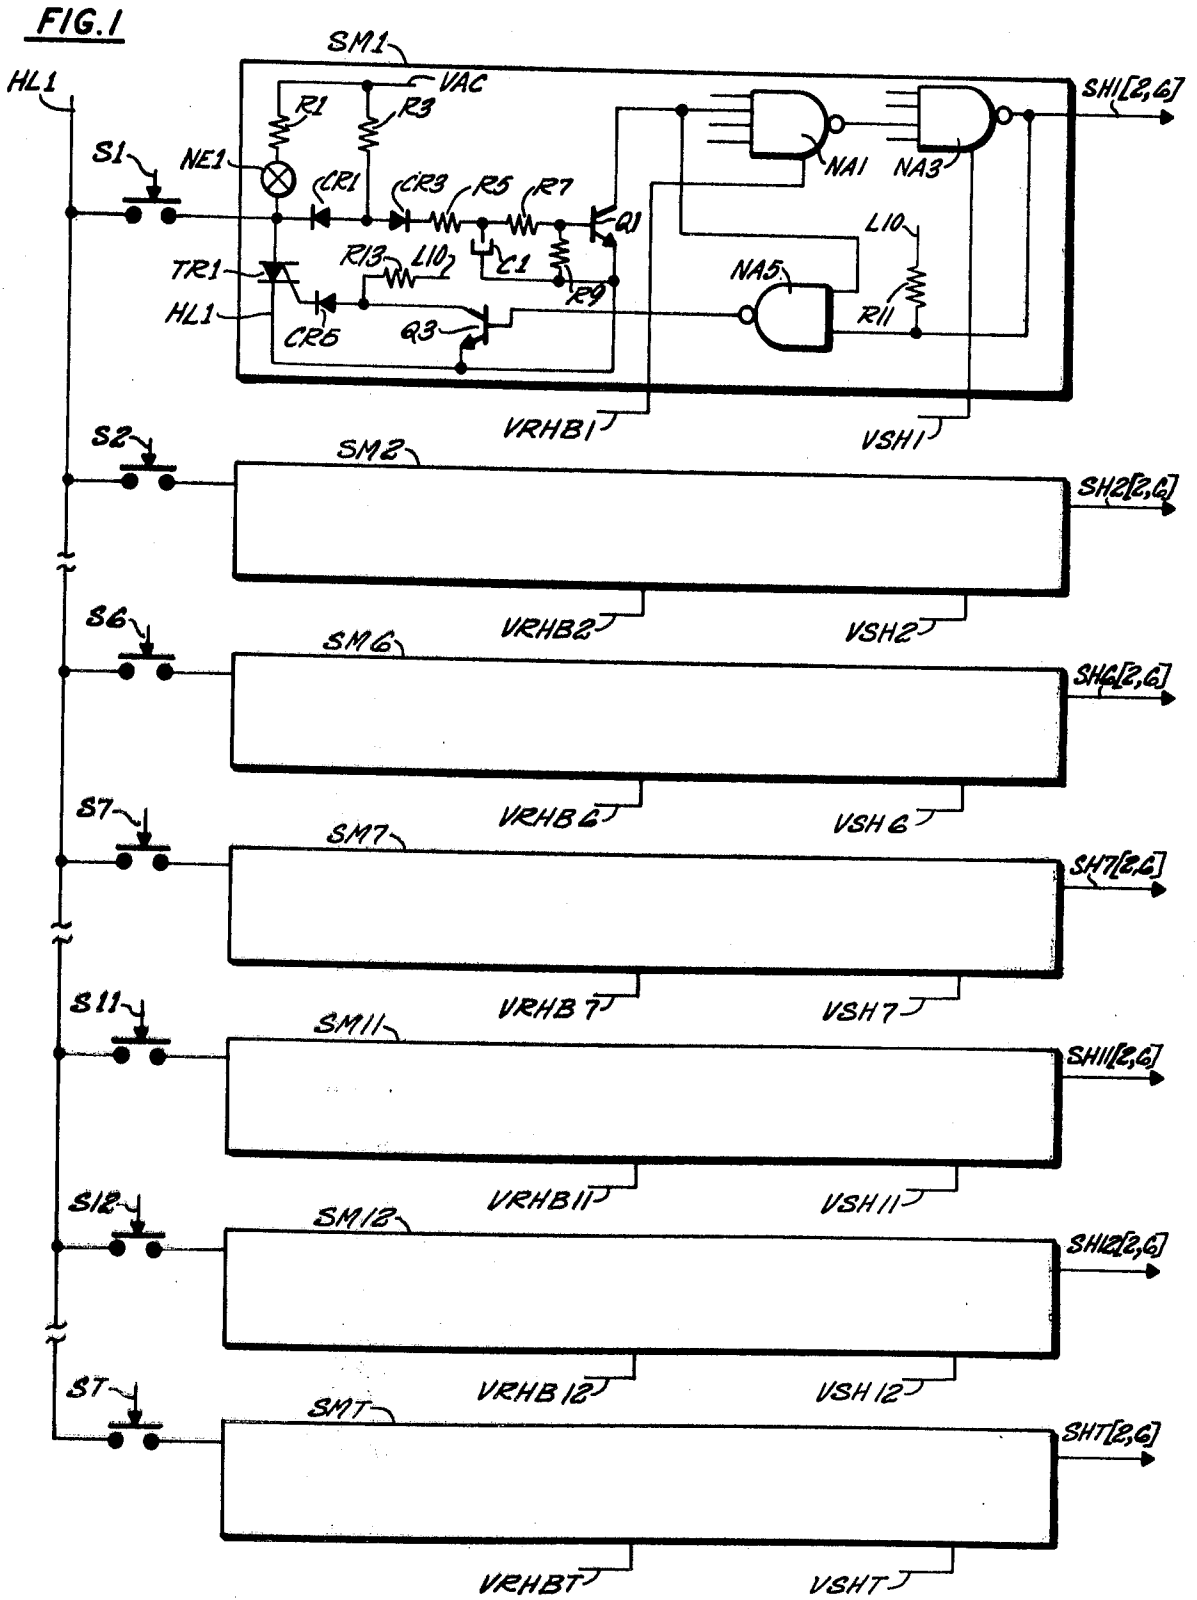 FIG.1
HL1
SM1
VAC
SH1[2,6]
R1
R3
S1
NE1
CR1
CR3
R5
R7
NA1
NA3
Q1
L10
TR1
R13
L10
C1
R9
NA5
R11
HL1
CR5
Q3
VRHB1
VSH1
S2
SM2
SH2[2,6]
VRHB2
VSH2
S6
SM6
SH6[2,6]
VRHB6
VSH6
S7
SM7
SH7[2,6]
VRHB7
VSH7
S11
SM11
SH11[2,6]
VRHB11
VSH11
S12
SM12
SH12[2,6]
VRHB12
VSH12
ST
SMT
SHT[2,6]
VRHBT
VSHT